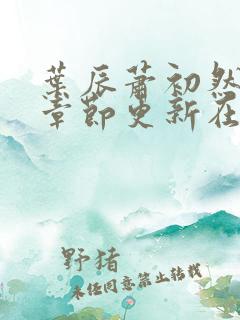 葉辰蕭初然
章節更新在
野猪
未经同意禁止转载